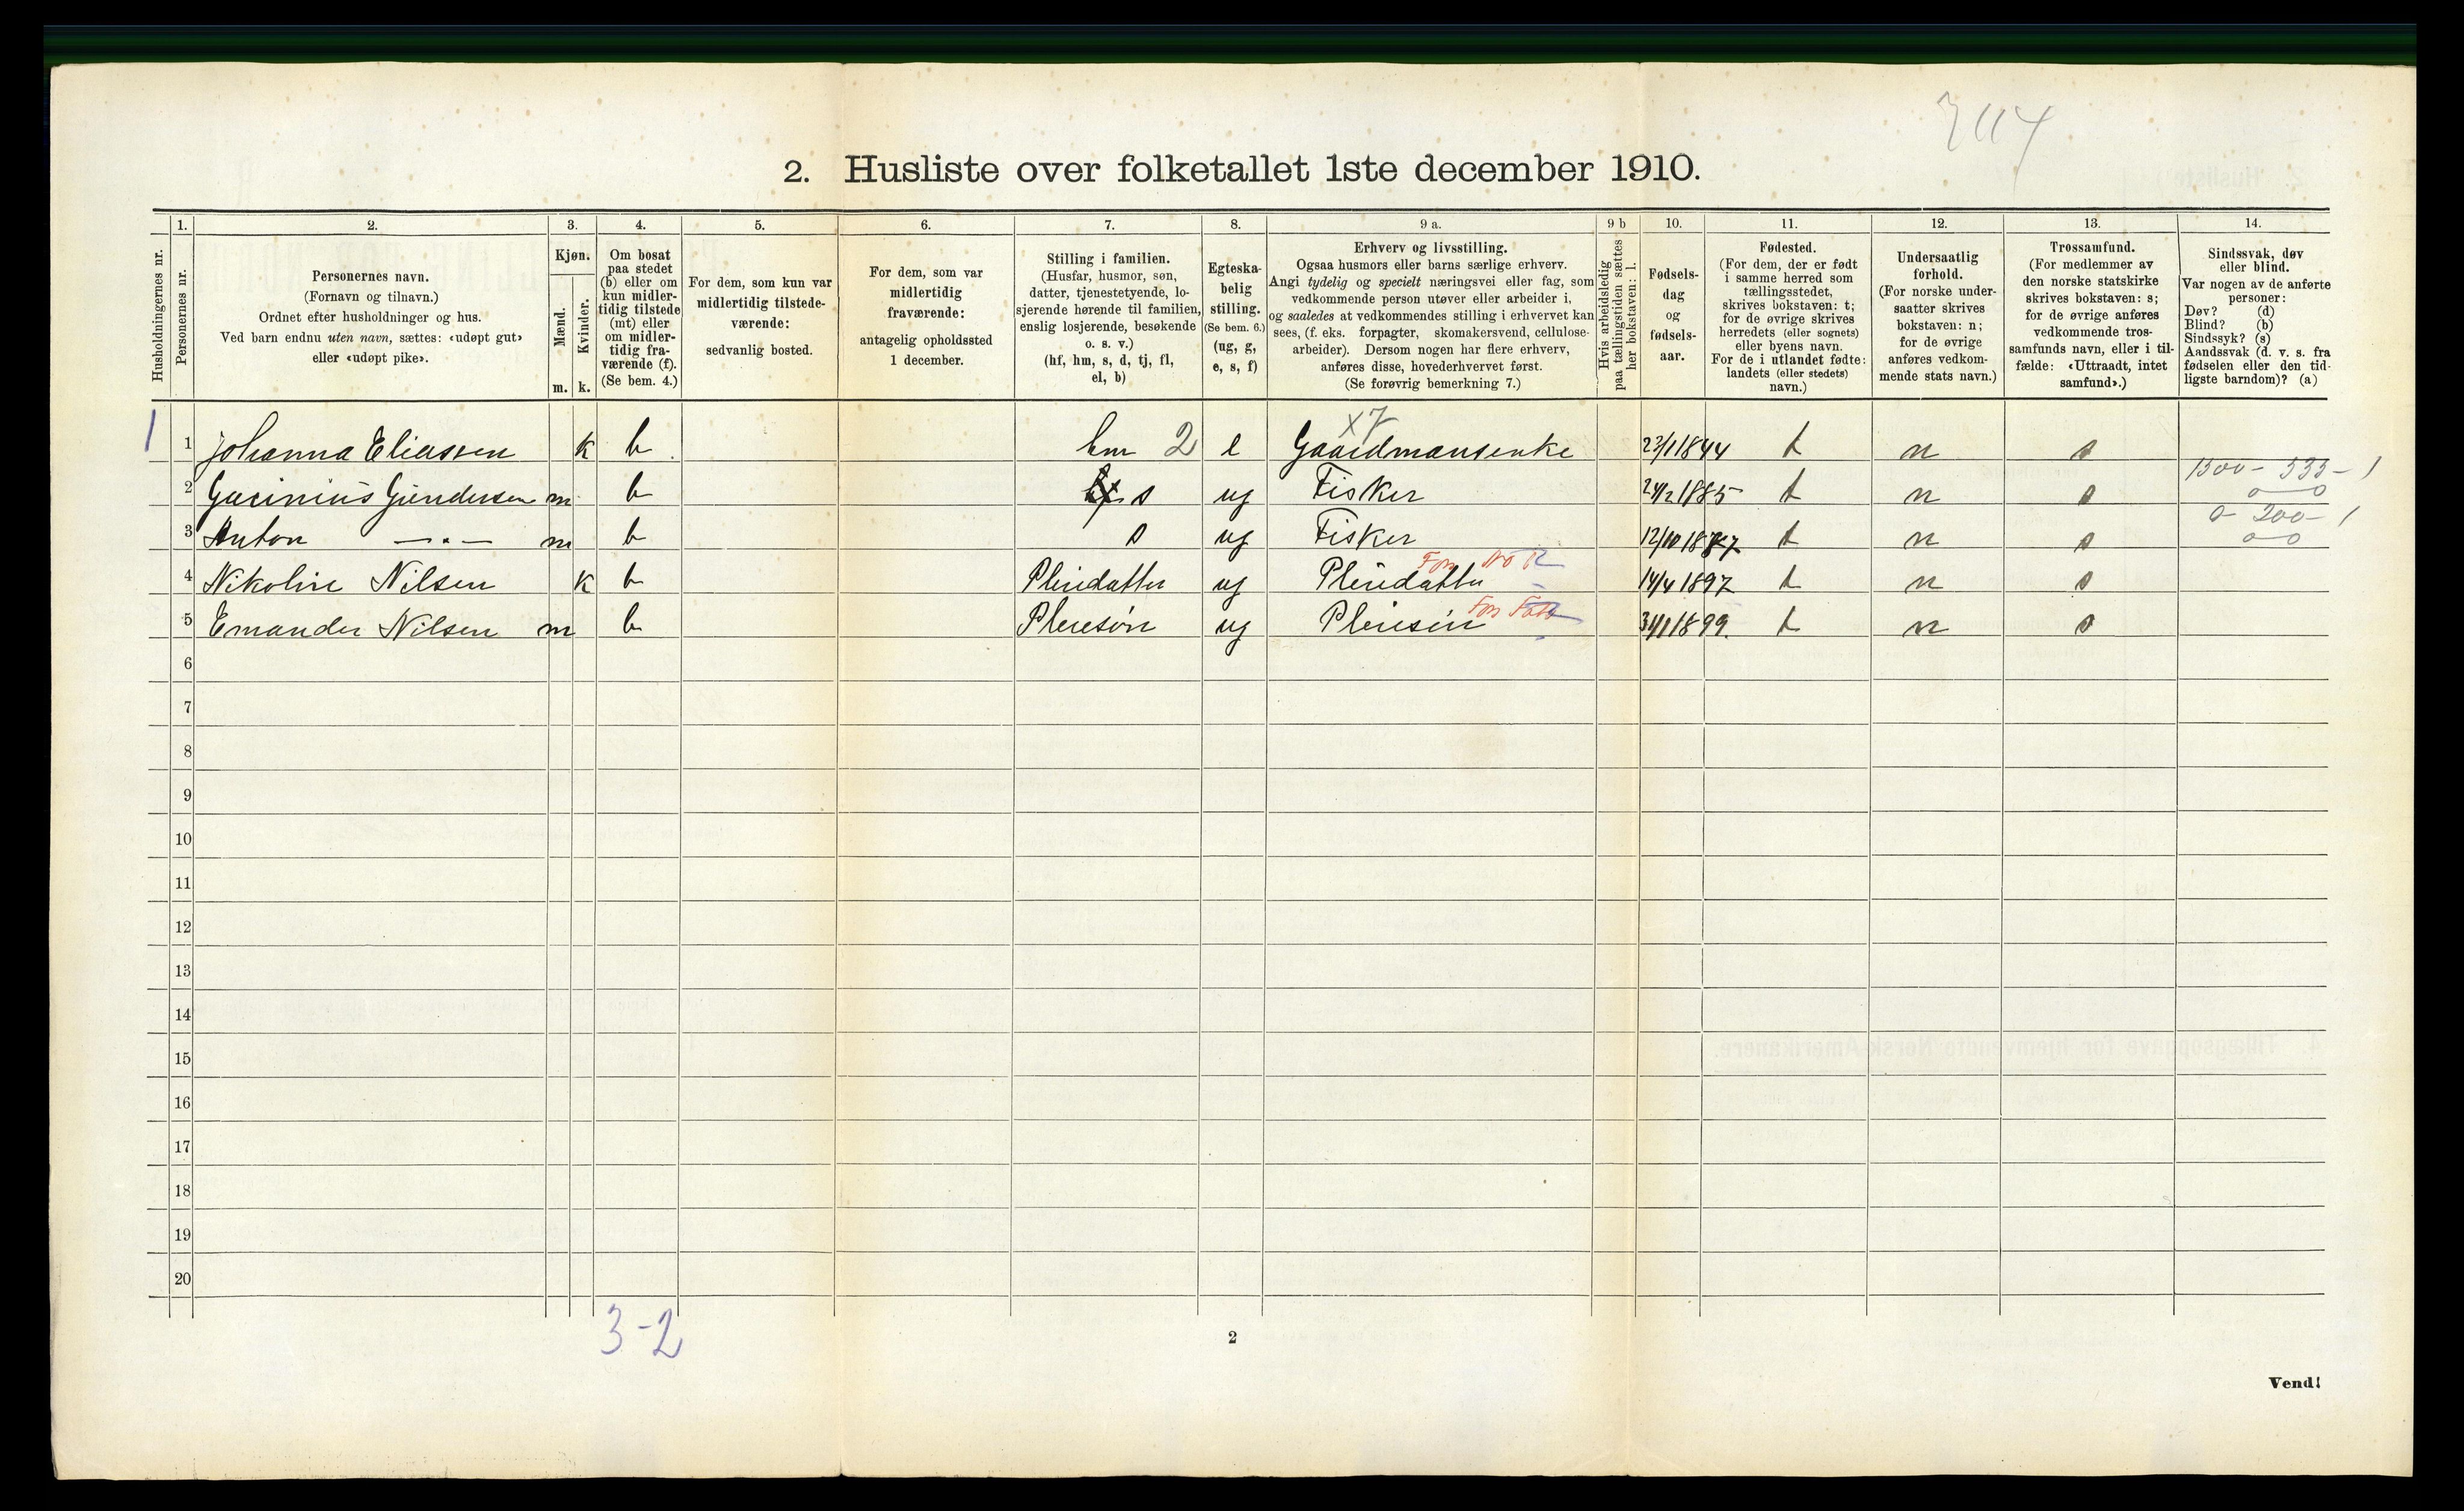 2. Husliste over folketallet 1ste december 1910.
1. 2. 3. 4. 5. 6. 7. 8. 9 a. 9 b 10. 11. 12. 13. 14.
Husholdningernes nr.
Personernes nr.
Personernes navn.
(Fornavn og tilnavn.)
Ordnet efter husholdninger og hus.
Ved barn endnu uten navn, sættes: «udøpt gut»
eller «udøpt pike».
Kjøn.
Mænd.
Kvinder.
m. k.
Om bosat
paa stedet
(b) eller om
kun midler-
tidig tilstede
(mt) eller
om midler-
tidig fra-
værende (f).
(Se bem. 4.)
For dem, som kun var
midlertidig tilstede-
værende:
sedvanlig bosted.
For dem, som var
midlertidig
fraværende:
antagelig opholdssted
1 december.
Stilling i familien.
(Husfar, husmor, søn,
datter, tjenestetyende, lo-
sjerende hørende til familien,
enslig losjerende, besøkende
o. s. v.)
(hf, hm, s, d, tj, fl,
el, b)
Egteska-
belig
stilling.
(Se bem. 6.)
(ug, g,
e, s, f)
Erhverv og livsstilling.
Ogsaa husmors eller barns særlige erhverv.
Angi tydelig og specielt næringsvei eller fag, som
vedkommende person utøver eller arbeider i,
og saaledes at vedkommendes stilling i erhvervet kan
sees, (f. eks. forpagter, skomakersvend, cellulose-
arbeider). Dersom nogen har flere erhverv,
anføres disse, hovederhvervet først.
(Se forøvrig bemerkning 7.)
Hvis arbeidsledig
paa tællingstiden sættes
her bokstaven: l.
Fødsels-
dag
og
fødsels-
aar.
Fødested.
(For dem, der er født
i samme herred som
tællingsstedet,
skrives bokstaven: t;
for de øvrige skrives
herredets (eller sognets)
eller byens navn.
For de i utlandet fødte:
landets (eller stedets)
navn.)
Undersaatlig
forhold.
(For norske under-
saatter skrives
bokstaven: n;
for de øvrige
anføres vedkom-
mende stats navn.)
Trossamfund.
(For medlemmer av
den norske statskirke
skrives bokstaven: s;
for de øvrige anføres
vedkommende tros-
samfunds navn, eller i til-
fælde: «Uttraadt, intet
samfund».)
Sindssvak, døv
eller blind.
Var nogen av de anførte
personer:
Døv? (d)
Blind? (b)
Sindssyk? (s)
Aandssvak (d. v. s. fra
fødselen eller den tid-
ligste barndom)? (a)
x7
1 1 Johanna Eliassen k b hm 2 e Gaardmansenke 23/1 1844 t n s
1300 - 535 - 1
2 Gundersen m b s ug Fisker 24/2 1885 t n s 0 0
0 200 - 1
3 Anton —"— m b s ug Fisker 12/10 1887 t n s 0 0
4 Nikoline Nilsen k b Pleiedatter ug Pleiedatter 14/4 1897 t n s
5 Emander Nilsen m b Pleiesøn ug Pleiesøn 31/1 1899. t n s
6
7
8
9
10
11
12
13
14
15
16
17
18
19
20
3-2
2
Vend!